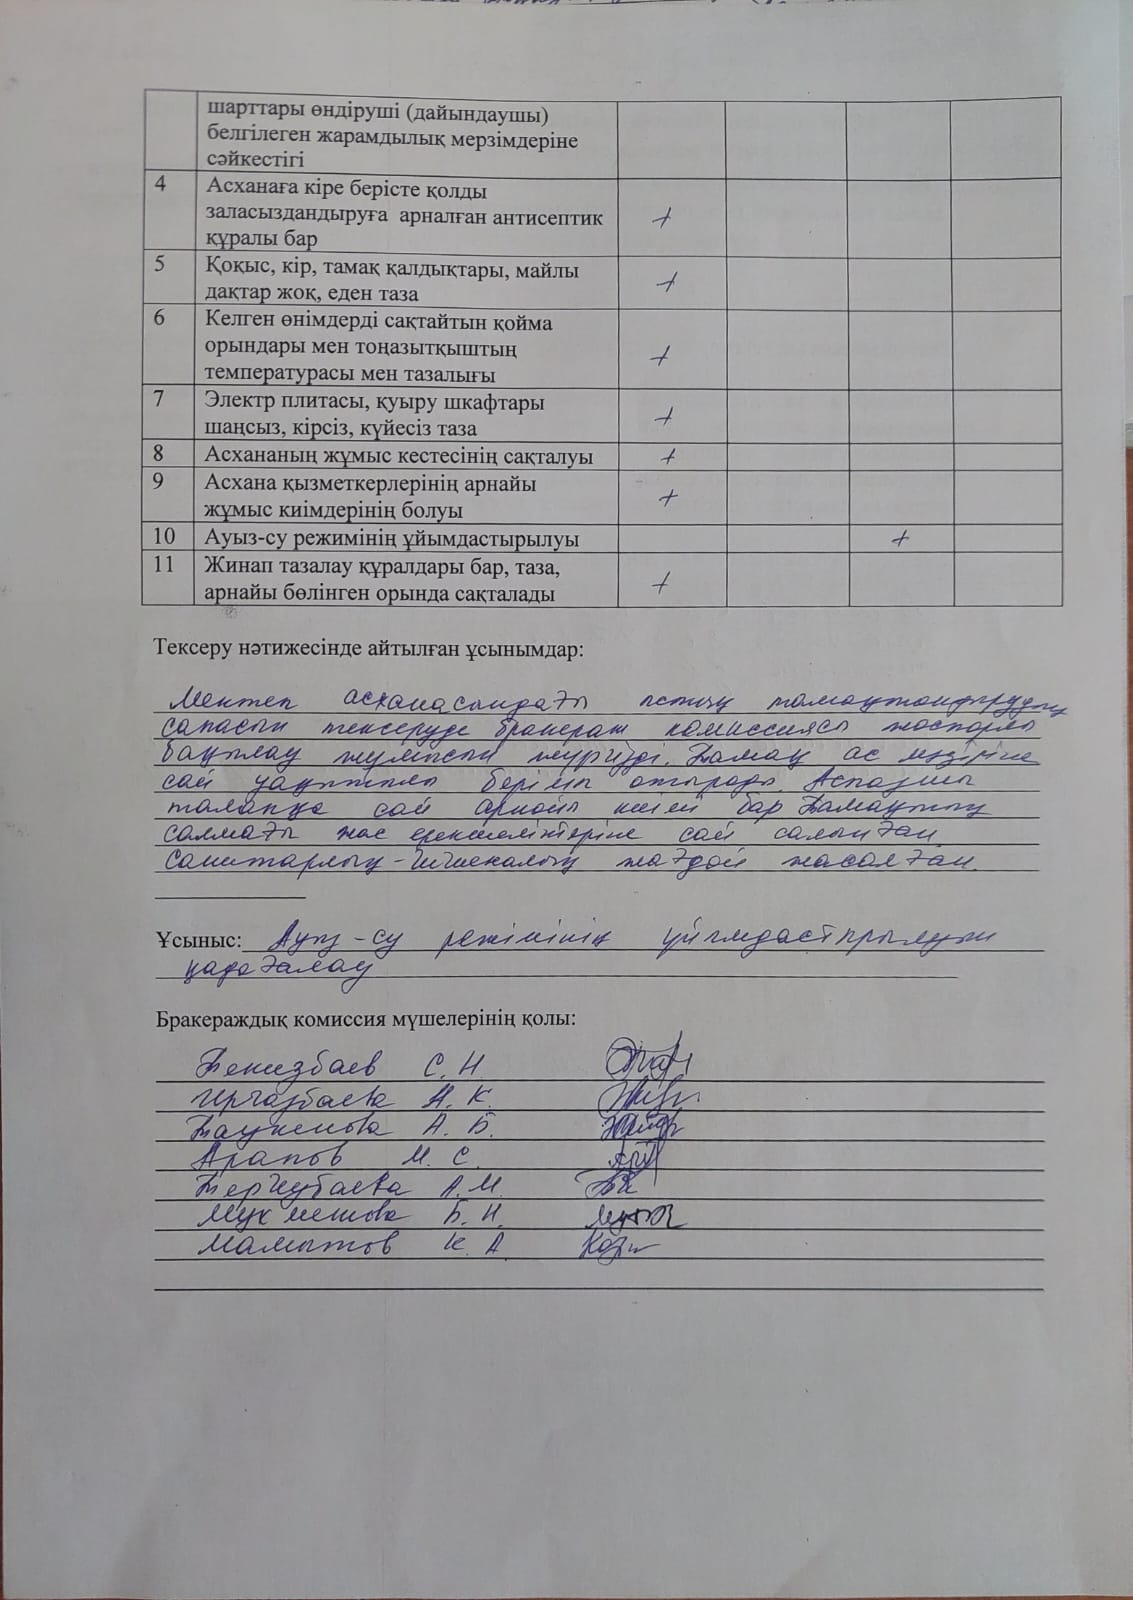 шарттары өндіруші (дайындаушы)
белгілеген жарамдылық мерзімдеріне
сәйкестігі
4 Асханаға кіре берісте қолды
заласыздандыруға арналған антисептик +
құралы бар
5 Қоқыс, кір, тамақ қалдықтары, майлы
дақтар жоқ, еден таза +
6 Келген өнімдерді сақтайтын қойма
орындары мен тоңазытқыштың +
температурасы мен тазалығы
7 Электр плитасы, қуыру шкафтары
шаңсыз, кірсіз, күйесіз таза +
8 Асхананың жұмыс кестесінің сақталуы +
9 Асхана қызметкерлерінің арнайы
жұмыс киімдерінің болуы +
10 Ауыз-су режимінің ұйымдастырылуы +
11 Жинап тазалау құралдары бар, таза,
арнайы бөлінген орында сақталады +
Тексеру нәтижесінде айтылған ұсынымдар:
Мектеп асханасындағы ыстық тамақтандырудың
сапасын тексеруде бракераж комиссиясы жоспарлы
бақылау жұмысын жүргізді. Тамақ ас мәзіріне
сай уақытылы беріліп отырады. Аспазшы
талапқа сай арнайы киімі бар Тамақтың
салмағы жас ерекшеліктеріне сай салынған
Санитарлық-гигиеналық жағдай жасалған.
Ұсыныс: Ауыз-су режімінің ұйымдастырылуын
қадағалау
Бракераждық комиссия мүшелерінің қолы:
С. Н.
А. К.
А. Б.
Арапов М. С.
А. М.
Б. Н.
Маматов К. А.